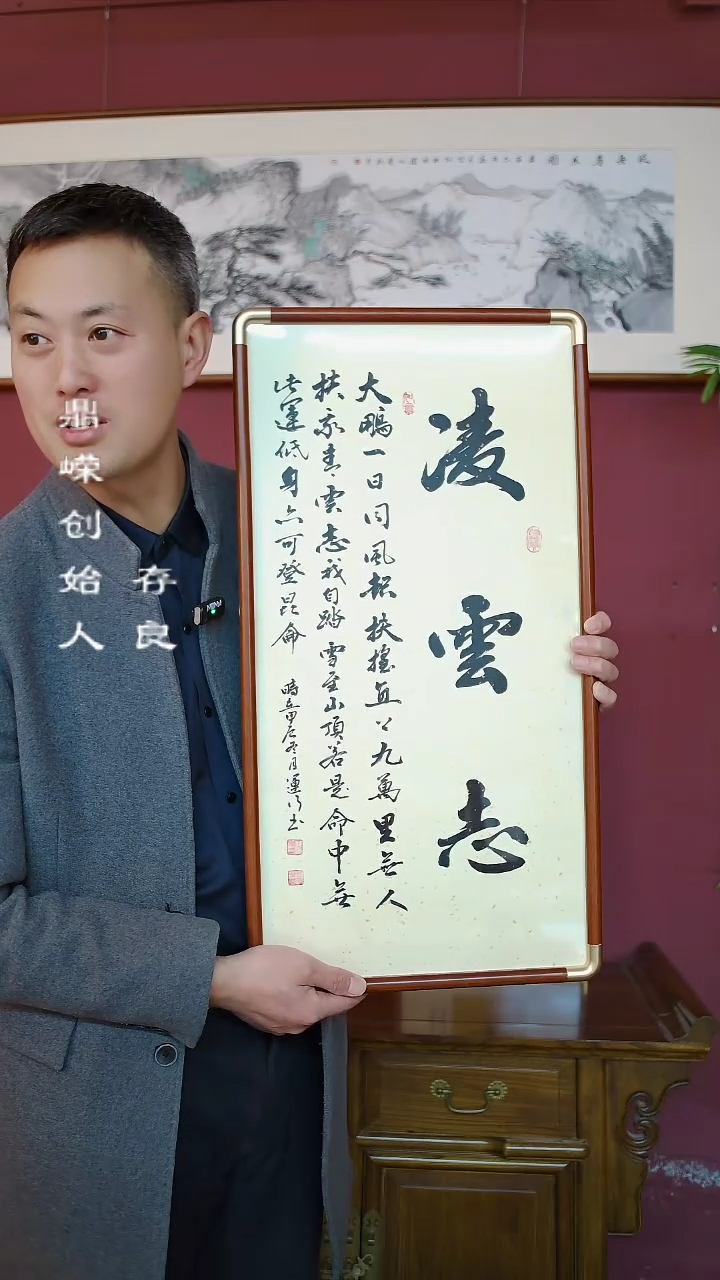 凌雲志
大鵬一日同風起扶搖直上九萬里無人
扶我青雲志我自踏雪至山頂若是命中無
此運低身亦可登昆侖
時在甲辰冬月運行書
鼎嵘创始人
存良